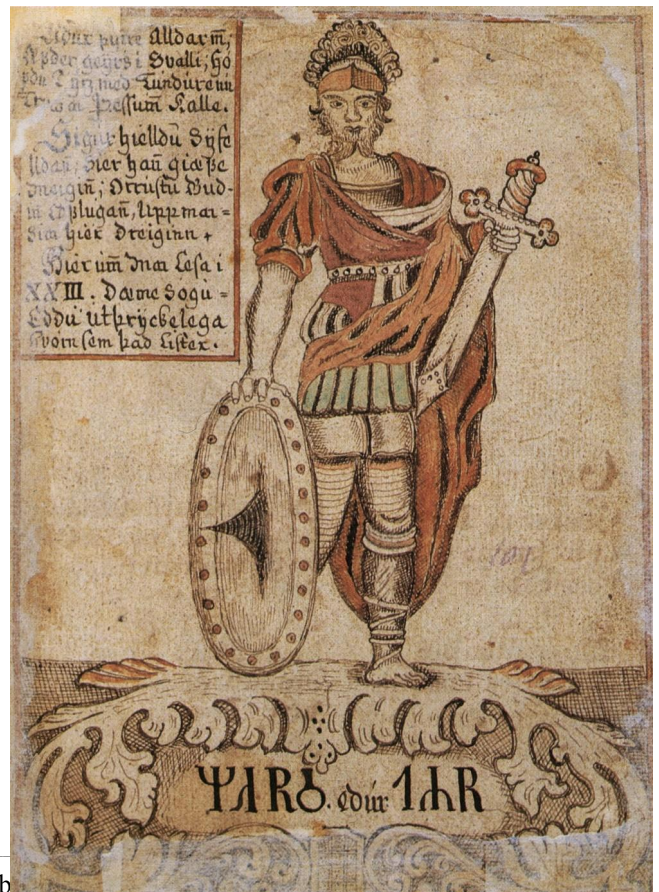 Alldarm̄;
geyrs i Svalli; ho
med Tundure nu
þessum̄ Kalle.
Sigur hielldū Syfe
hier han̄ giæfe
meigin̄; Orrustu Bud-
øflugan̄, Uppmai=
hier dreiginn
Hier um̄ mai Lesa i
XXIII. Dæme Sogu=
Eddu utþryckelega
svom sem þad Lister.
ᛘᛅRᛋ. edur ᛐᛦR
b